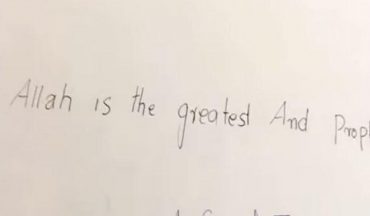 Allah is the greatest And